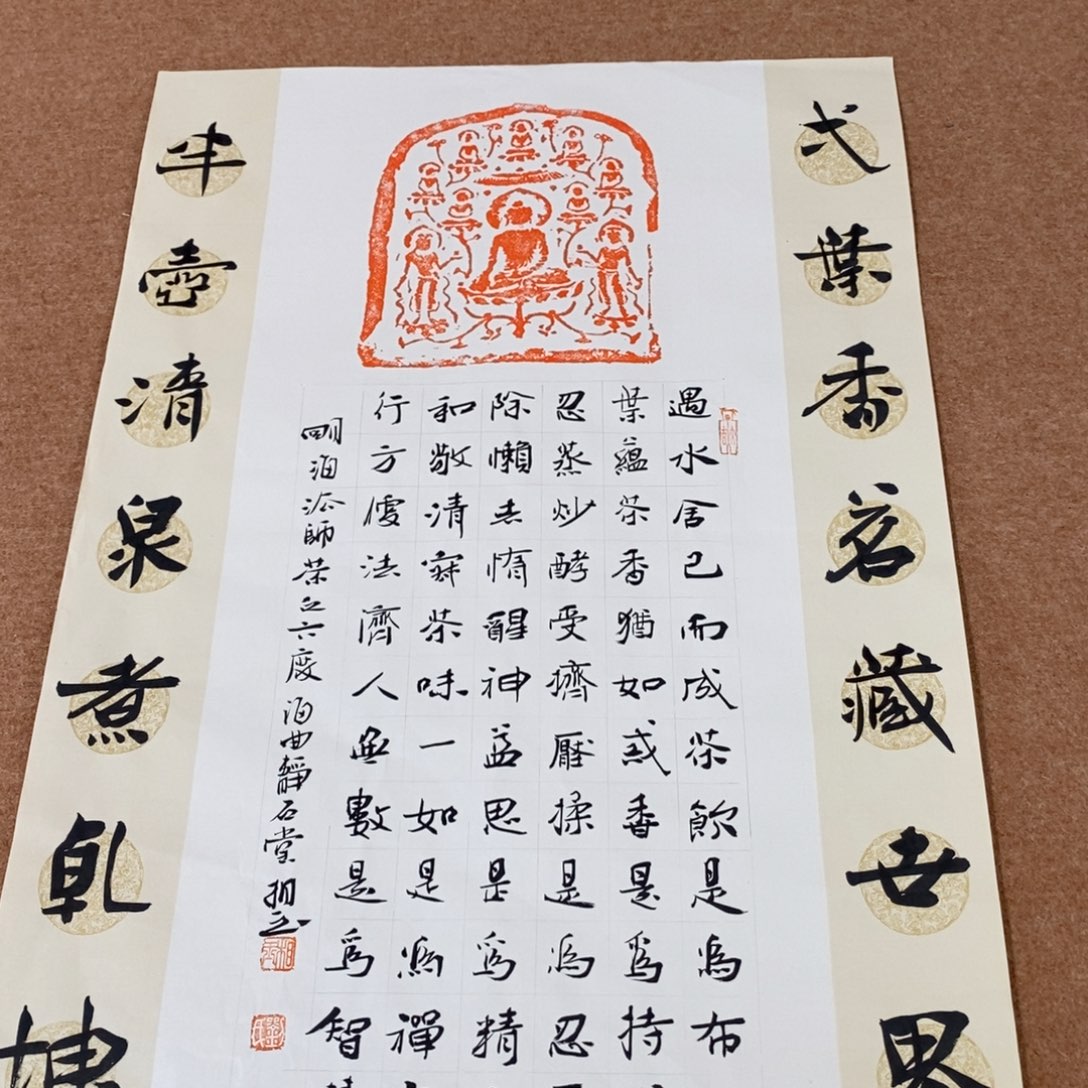 弌葉香茗藏世界
遇水舍己而成茶飲是爲布
葉蘊茶香猶如戒香是爲持
忍蒸炒酵受擠壓揉是爲忍
除懶去惰醒神益思是爲精
和敬清寂茶味一如是爲禪
行方便法濟人無數是爲智
朙海法師茶之六度海曲靜石堂相玉
半壺清泉煮乾坤